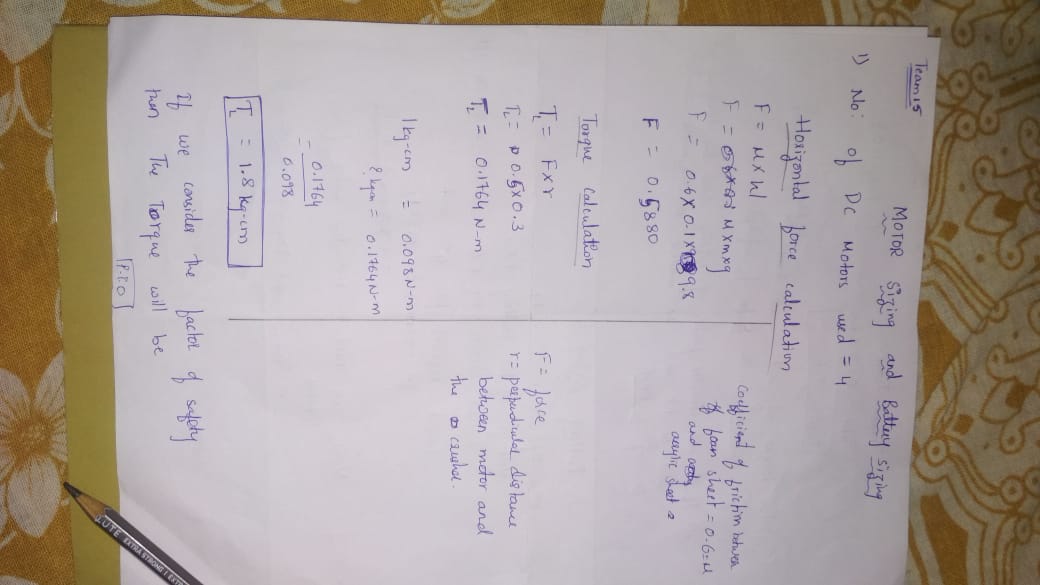 Team 15
MOTOR Sizing and Battery Sizing
1) No: of DC Motors used = 4
Horizontal force calculation
F = μ x W
F = μ x m x g
F = 0.6 x 0.1 x 9.8
F = 0.5880
Coefficient of friction between
of foam sheet = 0.6 = μ
and
acrylic sheet
Torque calculation
TL = F x r
TL = 0.5 x 0.3
TL = 0.1764 N-m
F = force
r = perpendicular distance
between motor and
the
1kg-cm = 0.098 N-m
? kgcm = 0.1764 N-m
= 0.1764
0.098
TL = 1.8 kg-cm
If we consider the factor of safety
then The Torque will be
P.T.O
LUTE EXTRA STRONG